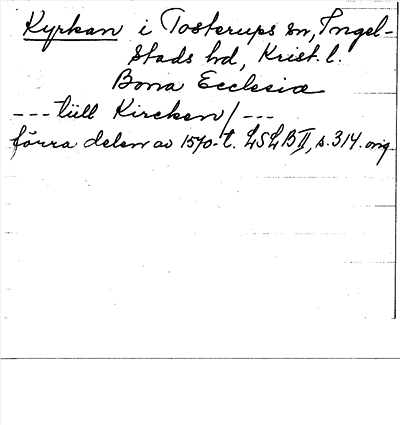 Kyrkan i Tosterups sn, Ingel-
stads hd, Krist. l.
Bona Ecclesiæ
--- tüll Kircken/ ---
förra delen av 1570-t. LSLB II, s. 314. orig